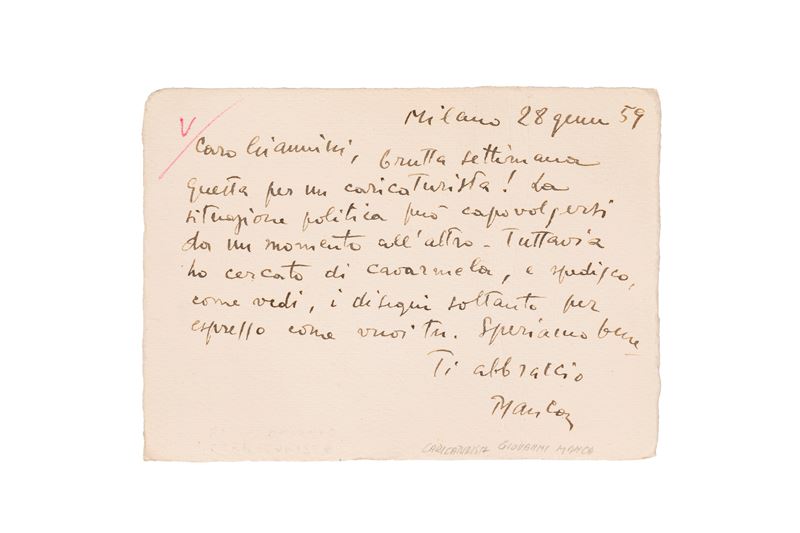 Milano 28 genn 59
V
Caro Giannini, brutta settimana
questa per un caricaturista! La
situazione politica può capovolgersi
da un momento all'altro - Tuttavia
ho cercato di cavarmela, e spedisco,
come vedi, i disegni soltanto per
espresso come vuoi tu. Speriamo bene
Ti abbraccio
Manca
CARICATURISTA GIOVANNI MANCA